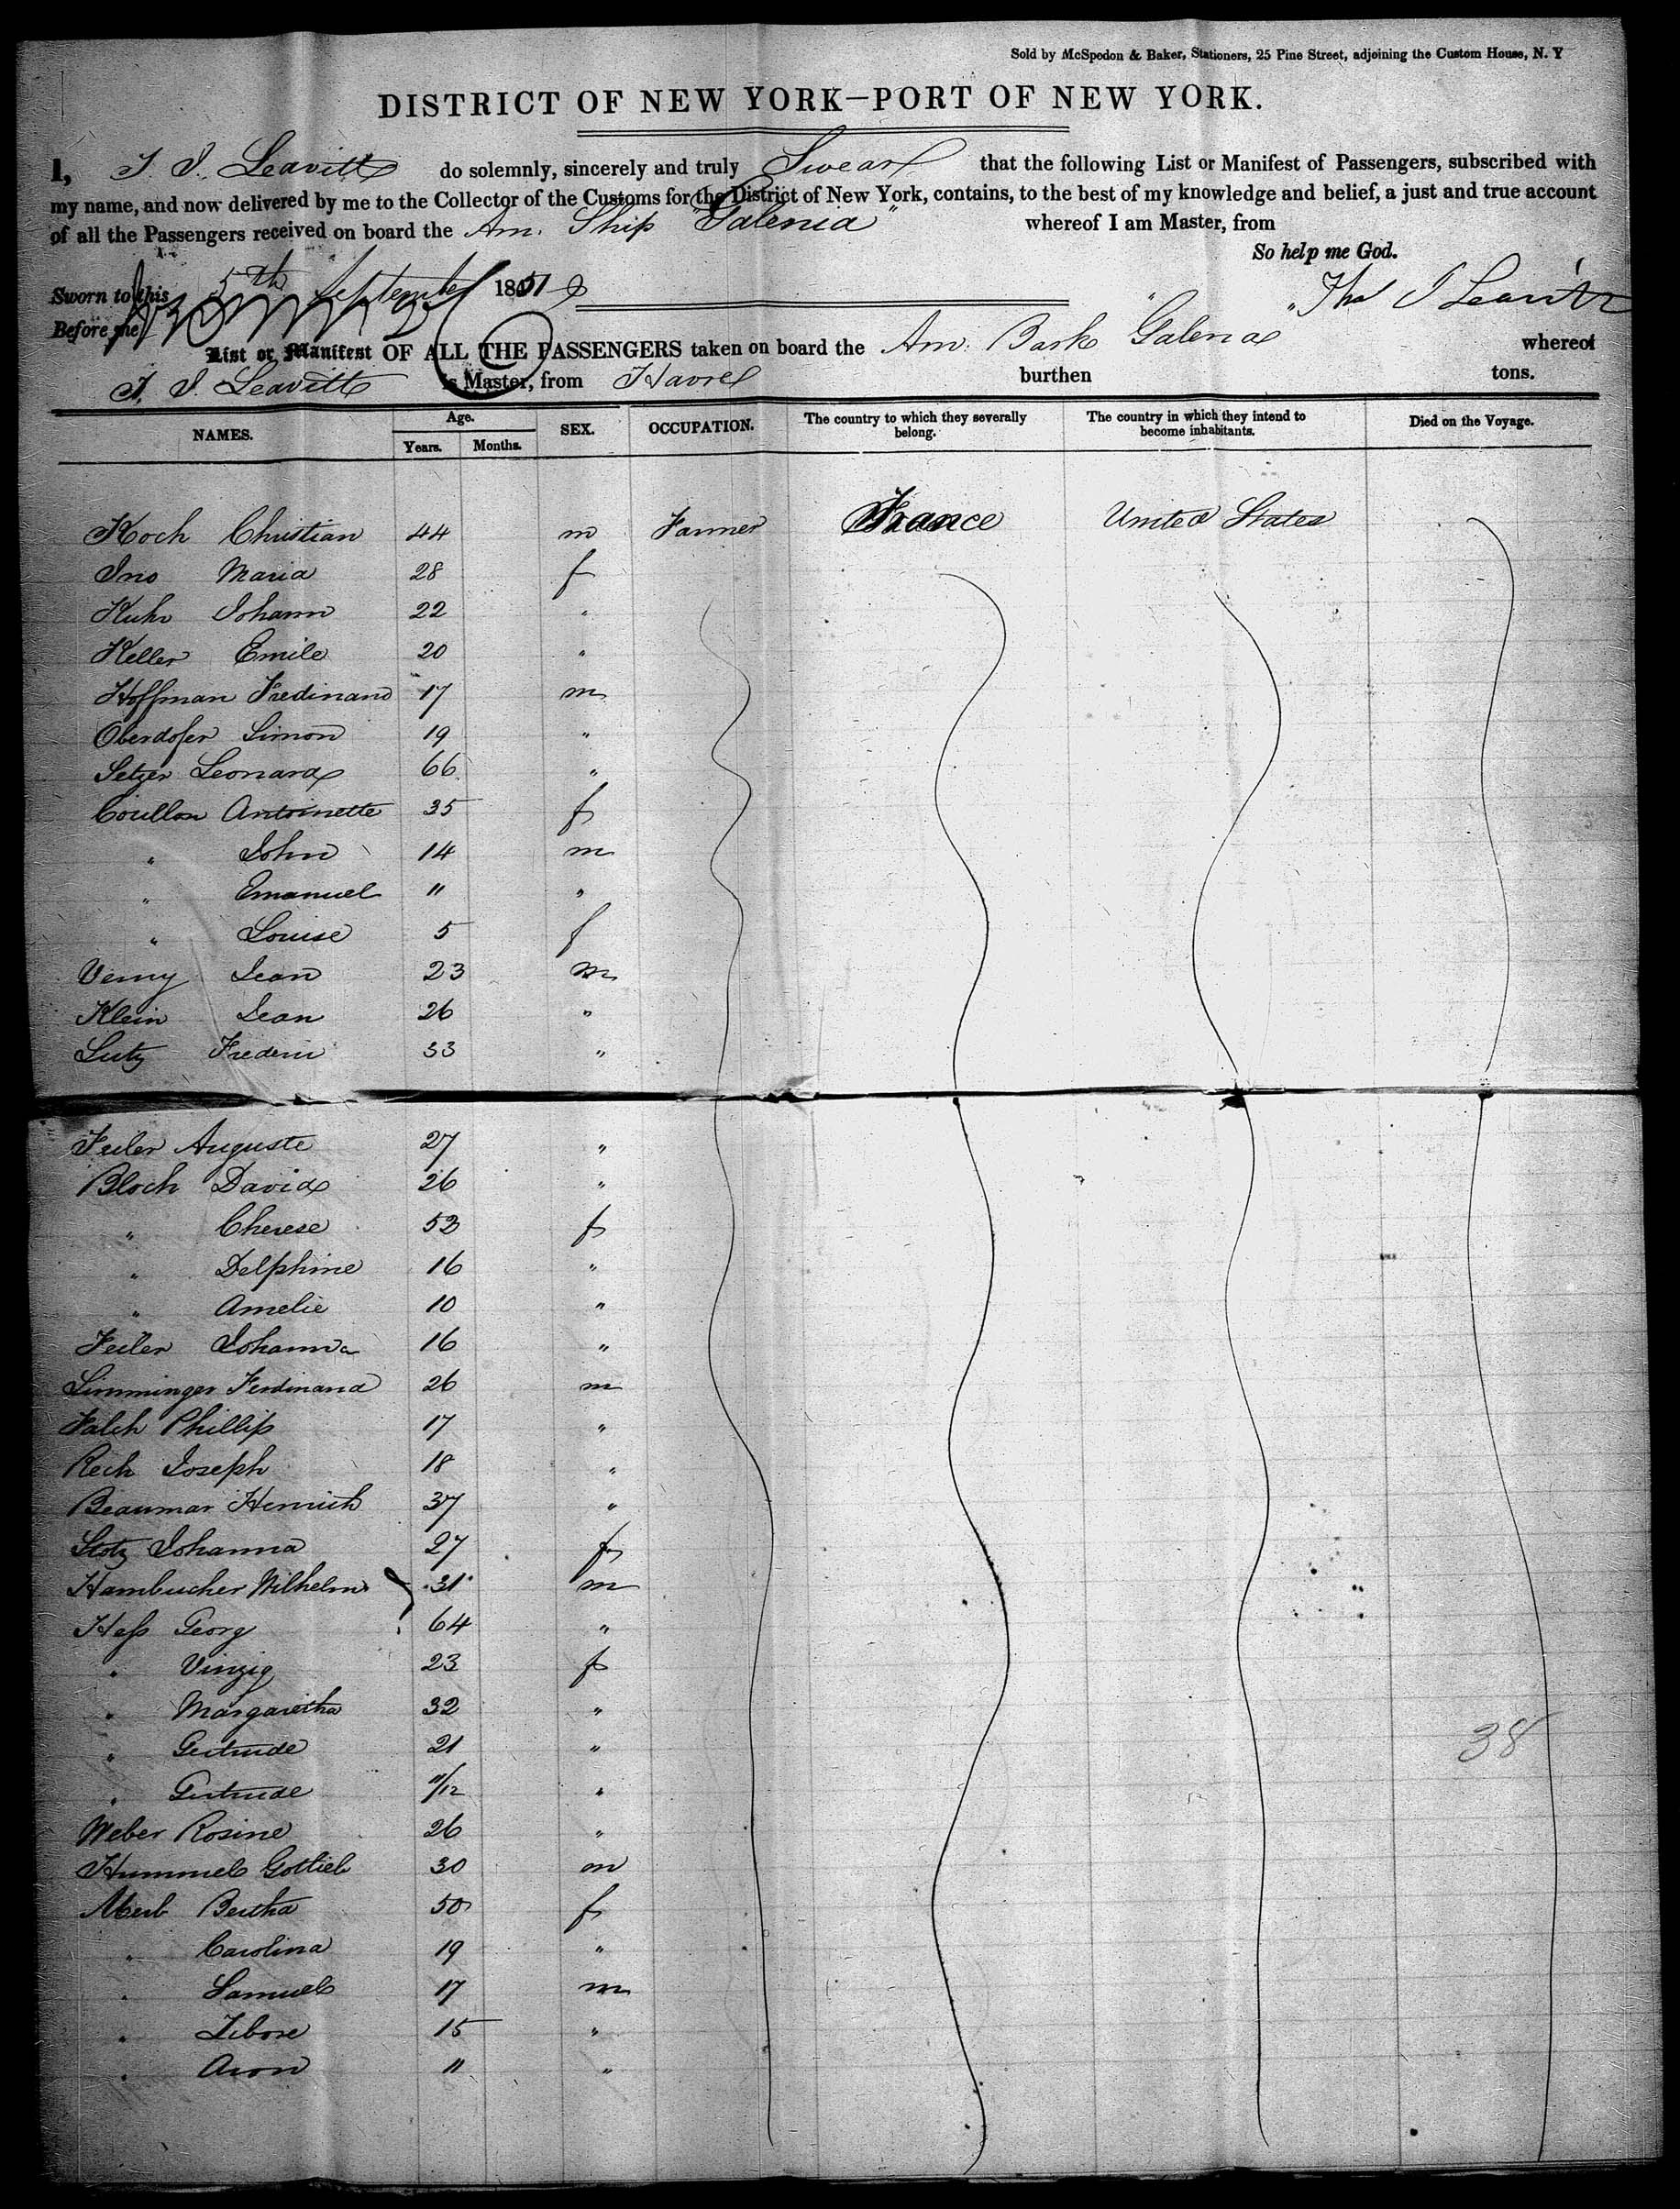 Sold by McSpedon & Baker, Stationers, 25 Pine Street, adjoining the Custom House, N. Y
DISTRICT OF NEW YORK—PORT OF NEW YORK.
I, T. J. Leavitt do solemnly, sincerely and truly Swear that the following List or Manifest of Passengers, subscribed with
my name, and now delivered by me to the Collector of the Customs for the District of New York, contains, to the best of my knowledge and belief, a just and true account
of all the Passengers received on board the Am. Ship "Galena" whereof I am Master, from
So help me God.
Sworn to this 5th September 1851
Before me
List or Manifest OF ALL THE PASSENGERS taken on board the Am. Bark Galena whereof
T. J. Leavitt is Master, from Havre burthen tons.
NAMES. Age. Years. Months. SEX. OCCUPATION. The country to which they severally belong. The country in which they intend to become inhabitants. Died on the Voyage.
Koch Christian 44 m Farmer France United States
Ino Maria 28 f
Kuhn Johann 22 "
Keller Emile 20 "
Hoffman Fredinand 17 m
Oberdofer Simon 19 "
Setzer Leonard 66 "
Coullon Antoinette 35 f
" John 14 m
" Emanuel 11 "
" Louise 5 f
Verny Jean 23 m
Klein Jean 26 "
Lutz Frederic 33 "
Feiler Auguste 27 "
Bloch David 26 "
" Cherese 53 f
" Delphine 16 "
" Amelie 10 "
Feiler Johanna 16 "
Simminger Ferdinand 26 m
Falch Phillip 17 "
Rech Joseph 18 "
Beaumar Henrich 37 "
Stotz Johanna 27 f
Hambucher Wilhelm 31 m
Hess Georg 64 "
" Vinzig 23 f
" Margaretha 32 "
" Gertrude 21 "
" Gertrude 11/12 "
Weber Rosine 26 "
Hummel Gottlieb 30 m
Bertha 50 f
" Carolina 19 "
" Samuel 17 m
" 15 "
" Aron 11 "
38